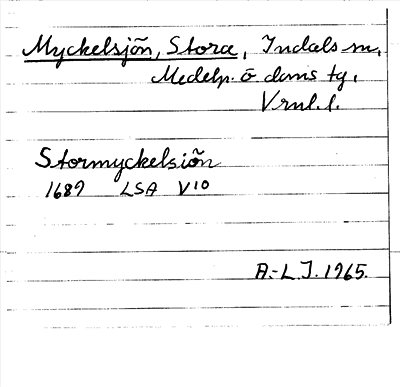 Myckelsjön, Stora, Indals sn,
Medelp. ö. doms tg,
Vrnl. l.
Stormyckelsiön
1689 LSA V10
A.-L J. 1965.